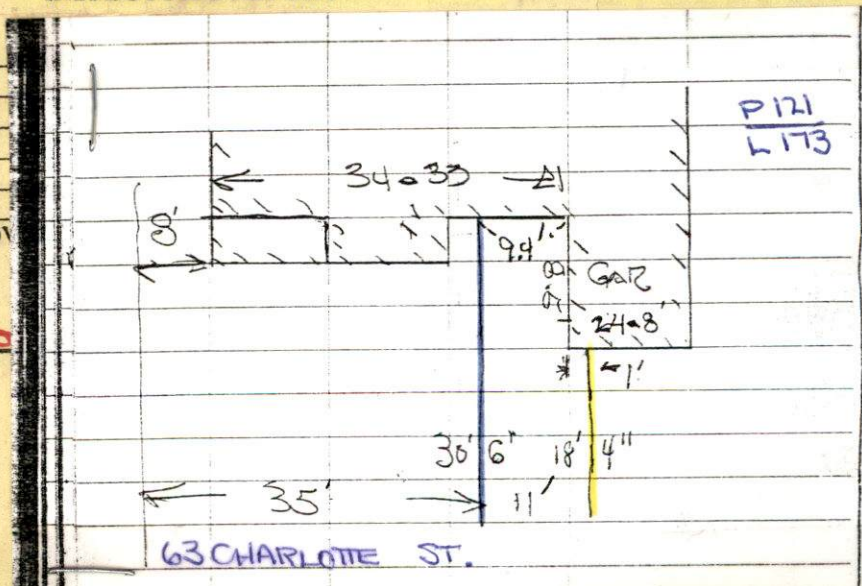 P 121
L 173
34.33
8'
9.4'
GAR
24.8'
1'
6"
18' 4"
35'
11'
63 CHARLOTTE ST.